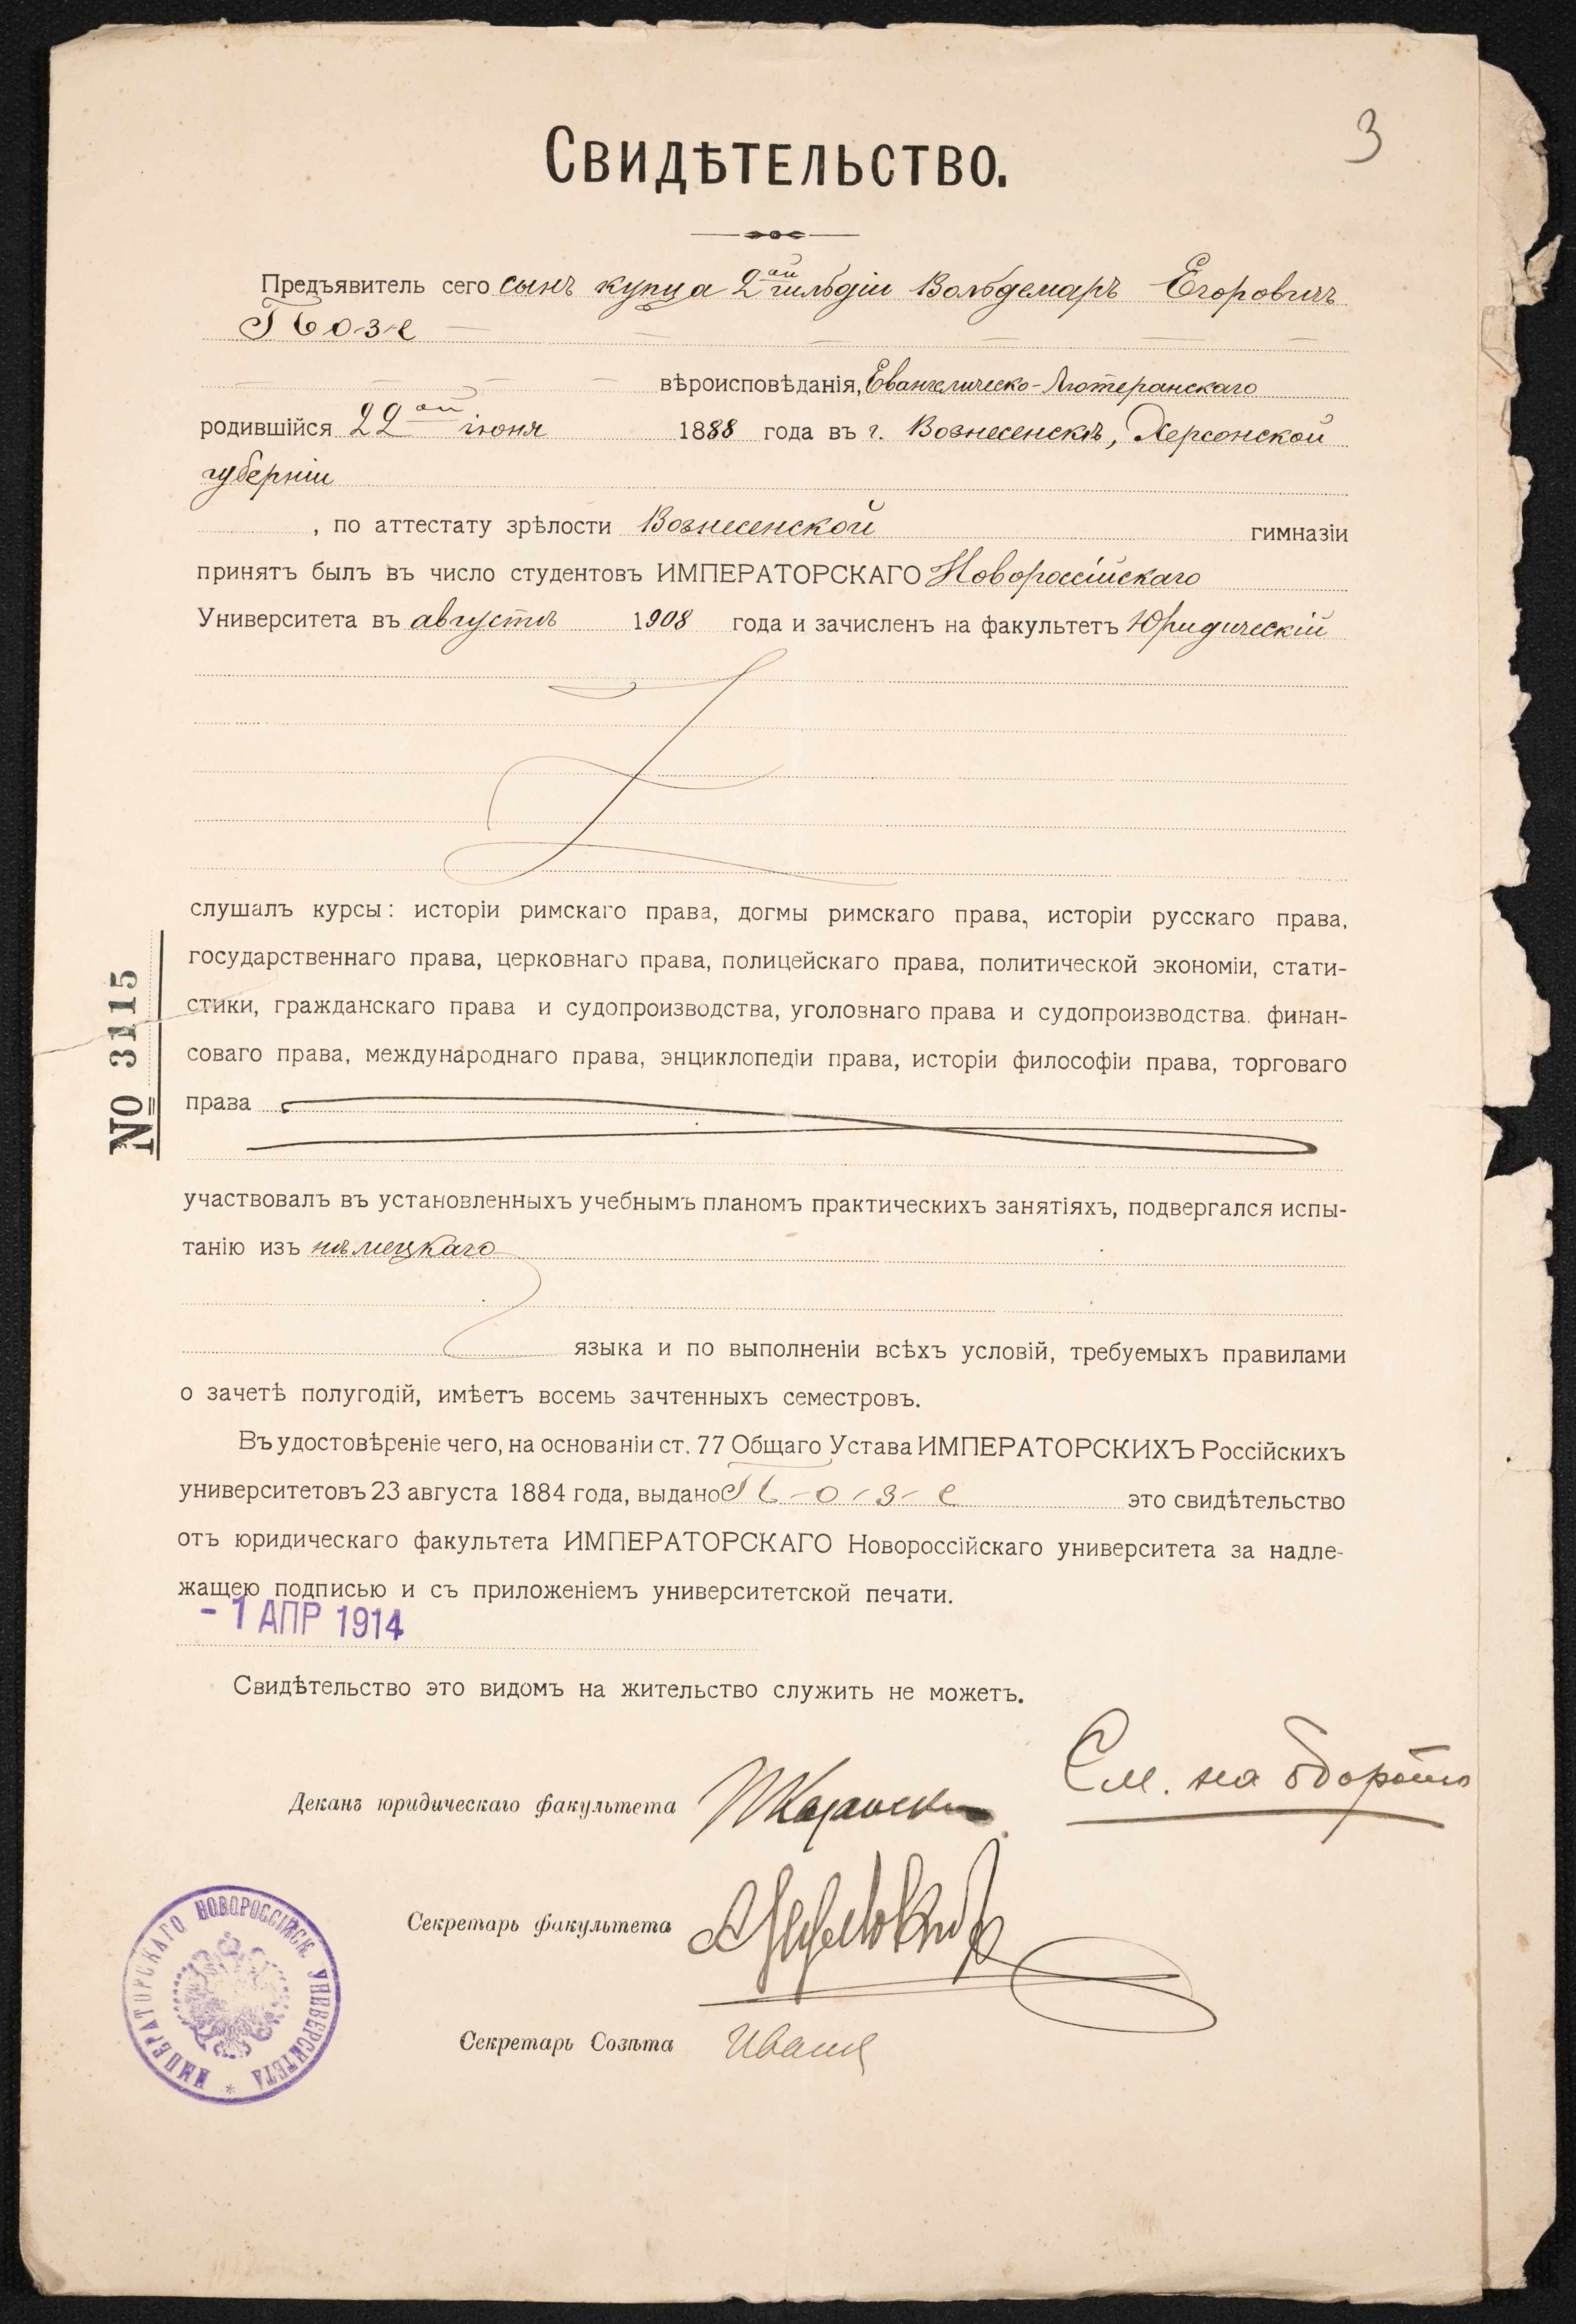 3
Свидѣтельство.
Предъявитель сего сынъ купца 2ой гильдіи Вольдемаръ Егоровичъ
Гьозе
вѣроисповѣданія, Евангелическо-Лютеранскаго
родившійся 22ого іюня 1888 года въ г. Вознесенскѣ, Херсонской
губерніи
, по аттестату зрѣлости Вознесенской гимназіи
принятъ былъ въ число студентовъ ИМПЕРАТОРСКАГО Новороссійскаго
Университета въ августѣ 1908 года и зачисленъ на факультетъ Юридическій
слушалъ курсы: исторіи римскаго права, догмы римскаго права, исторіи русскаго права,
государственнаго права, церковнаго права, полицейскаго права, политической экономіи, стати-
стики, гражданскаго права и судопроизводства, уголовнаго права и судопроизводства. финан-
соваго права, международнаго права, энциклопедіи права, исторіи философіи права, торговаго
права
NO 3115
участвовалъ въ установленныхъ учебнымъ планомъ практическихъ занятіяхъ, подвергался испы-
танію изъ нѣмецкаго
языка и по выполненіи всѣхъ условій, требуемыхъ правилами
о зачетѣ полугодій, имѣетъ восемь зачтенныхъ семестровъ.
Въ удостовѣреніе чего, на основаніи ст. 77 Общаго Устава ИМПЕРАТОРСКИХЪ Россійскихъ
университетовъ 23 августа 1884 года, выдано Гь-о-з-е это свидѣтельство
отъ юридическаго факультета ИМПЕРАТОРСКАГО Новороссійскаго университета за надле-
жащею подписью и съ приложеніемъ университетской печати.
- 1 АПР 1914
Свидѣтельство это видомъ на жительство служить не можетъ.
См. на оборотѣ
Деканъ юридическаго факультета
Секретарь факультета
Секретарь Совѣта
ИМПЕРАТОРСКАГО НОВОРОССІЙСК. УНИВЕРСИТЕТА *